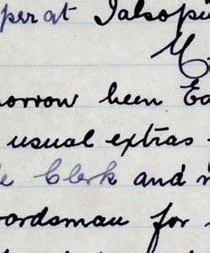 per at Talsopi
M
orrow been Ea
usual extras
e Clerk and
wordsman for